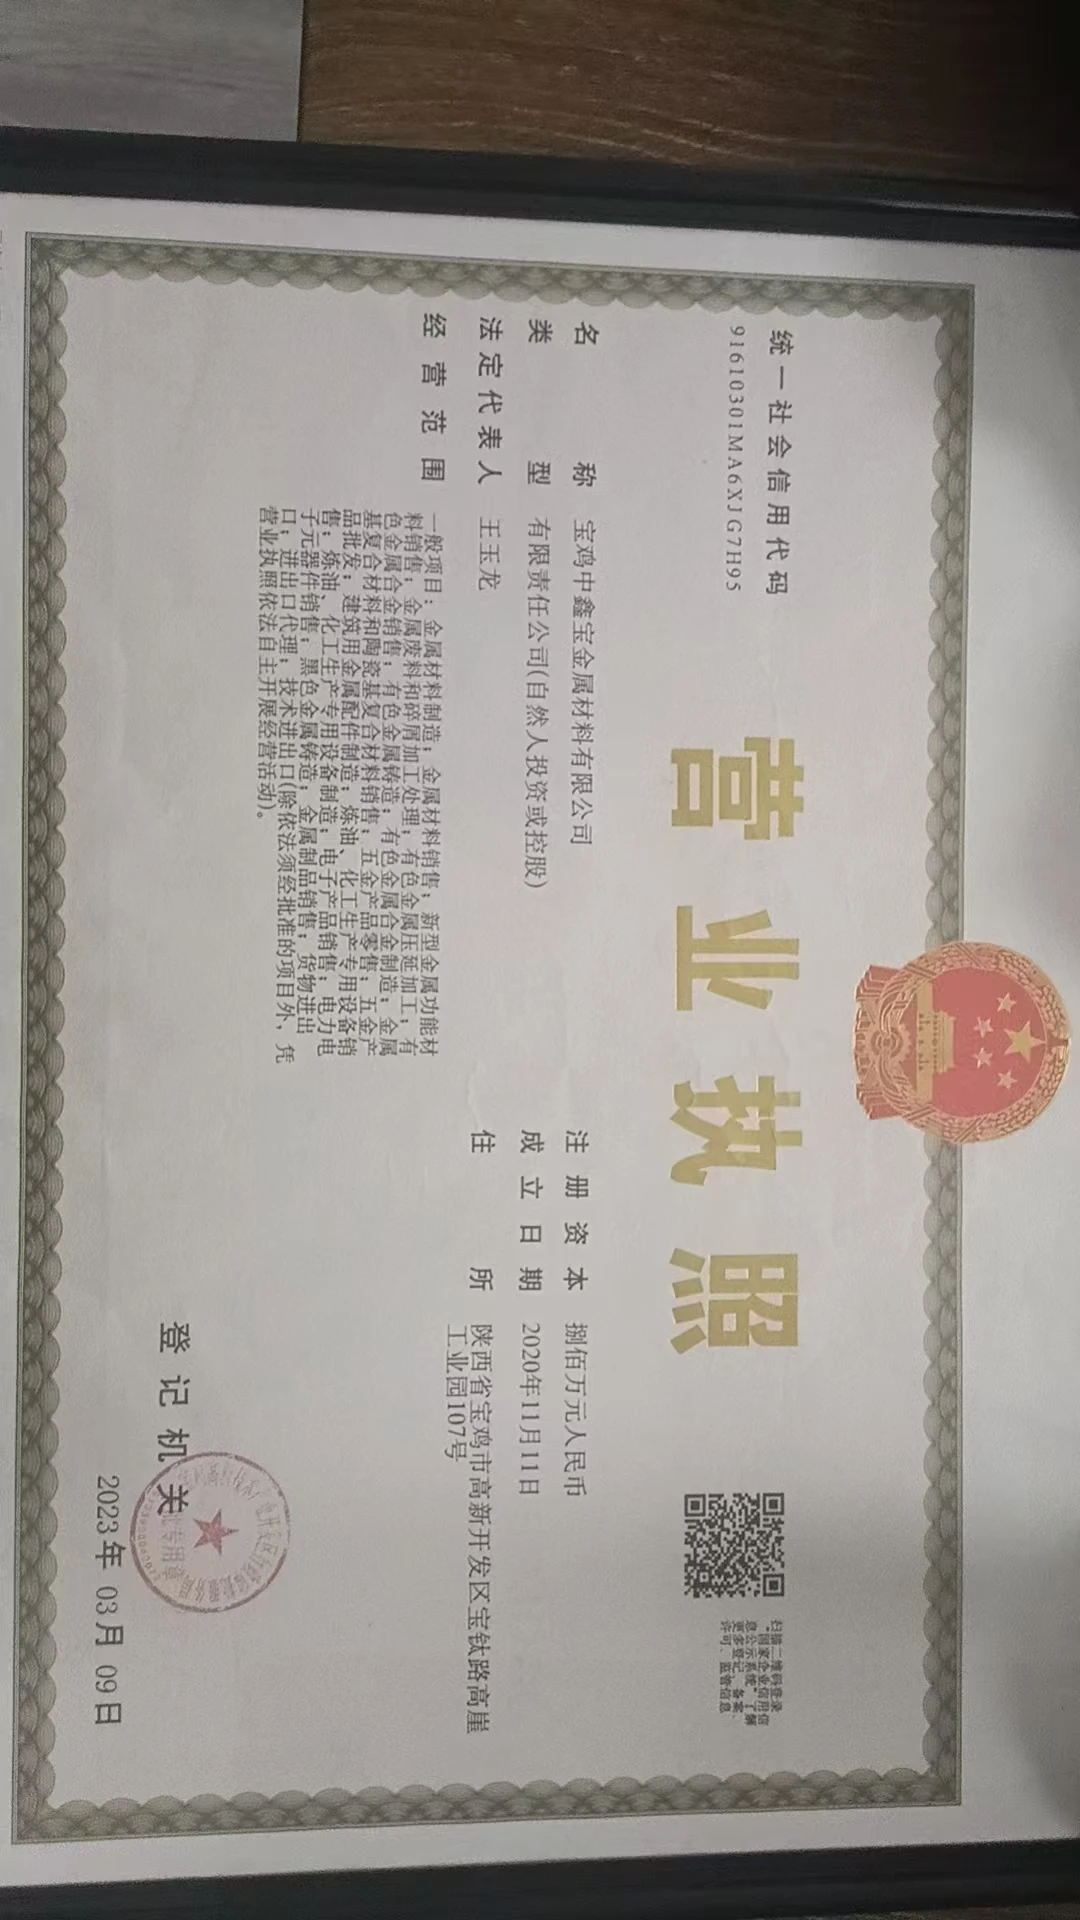 营业执照
统一社会信用代码
91610301MA6XJG7H95
扫描二维码登录
“国家企业信用信
息公示系统”了解
更多登记、备案、
许可、监管信息。
名称 宝鸡中鑫宝金属材料有限公司
类型 有限责任公司(自然人投资或控股)
法定代表人 王玉龙
经营范围 一般项目：金属材料制造；金属材料销售；新型金属功能材
料销售；金属废料和碎屑加工处理；有色金属压延加工；有
色金属合金销售；有色金属铸造；有色金属合金制造；金属
基复合材料和陶瓷基复合材料销售；五金产品零售；五金产
品批发；建筑用金属配件制造；炼油、化工生产专用设备销
售；炼油、化工生产专用设备制造；电子产品销售；电力电
子元器件销售；黑色金属铸造；金属制品销售；货物进出
口；进出口代理；技术进出口(除依法须经批准的项目外，凭
营业执照依法自主开展经营活动)。
注册资本 捌佰万元人民币
成立日期 2020年11月11日
住所 陕西省宝鸡市高新开发区宝钛路高崖
工业园107号
登记机关
2023年03月09日